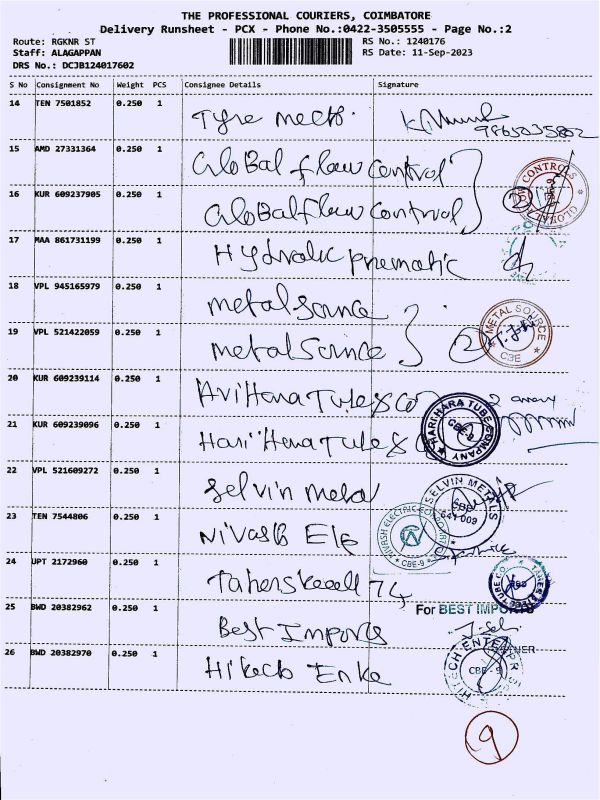 THE PROFESSIONAL COURIERS, COIMBATORE
Delivery Runsheet - PCX - Phone No.:0422-3505555 - Page No.:2
Route: RGKNR ST RS No.: 1240176
Staff: ALAGAPPAN RS Date: 11-Sep-2023
DRS No.: DCJB124017602
S No Consignment No Weight PCS Consignee Details Signature
14 TEN 7501852 0.250 1 Tyre
15 AMD 27331364 0.250 1 Global flow control
16 KUR 609237905 0.250 1 Global flow control 2 GLOBAL CONTROLS
17 MAA 861731199 0.250 1 Hydralic pnematic
18 VPL 945165979 0.250 1 metal
19 VPL 521422059 0.250 1 metal 2 METAL SOURCE CBE
20 KUR 609239114 0.250 1 Tube & Co
21 KUR 609239096 0.250 1 Tube & Co HARIHARA TUBE COMPANY CBE-9
22 VPL 521609272 0.250 1 Selvin metal SELVIN METALS CBE 641 009
23 TEN 7544806 0.250 1 Ele CBE-9
24 UPT 2172960 0.250 1
25 BWD 20382962 0.250 1 Best Imports For BEST IMPORTS
26 BWD 20382970 0.250 1 HITECH CBE-9
9